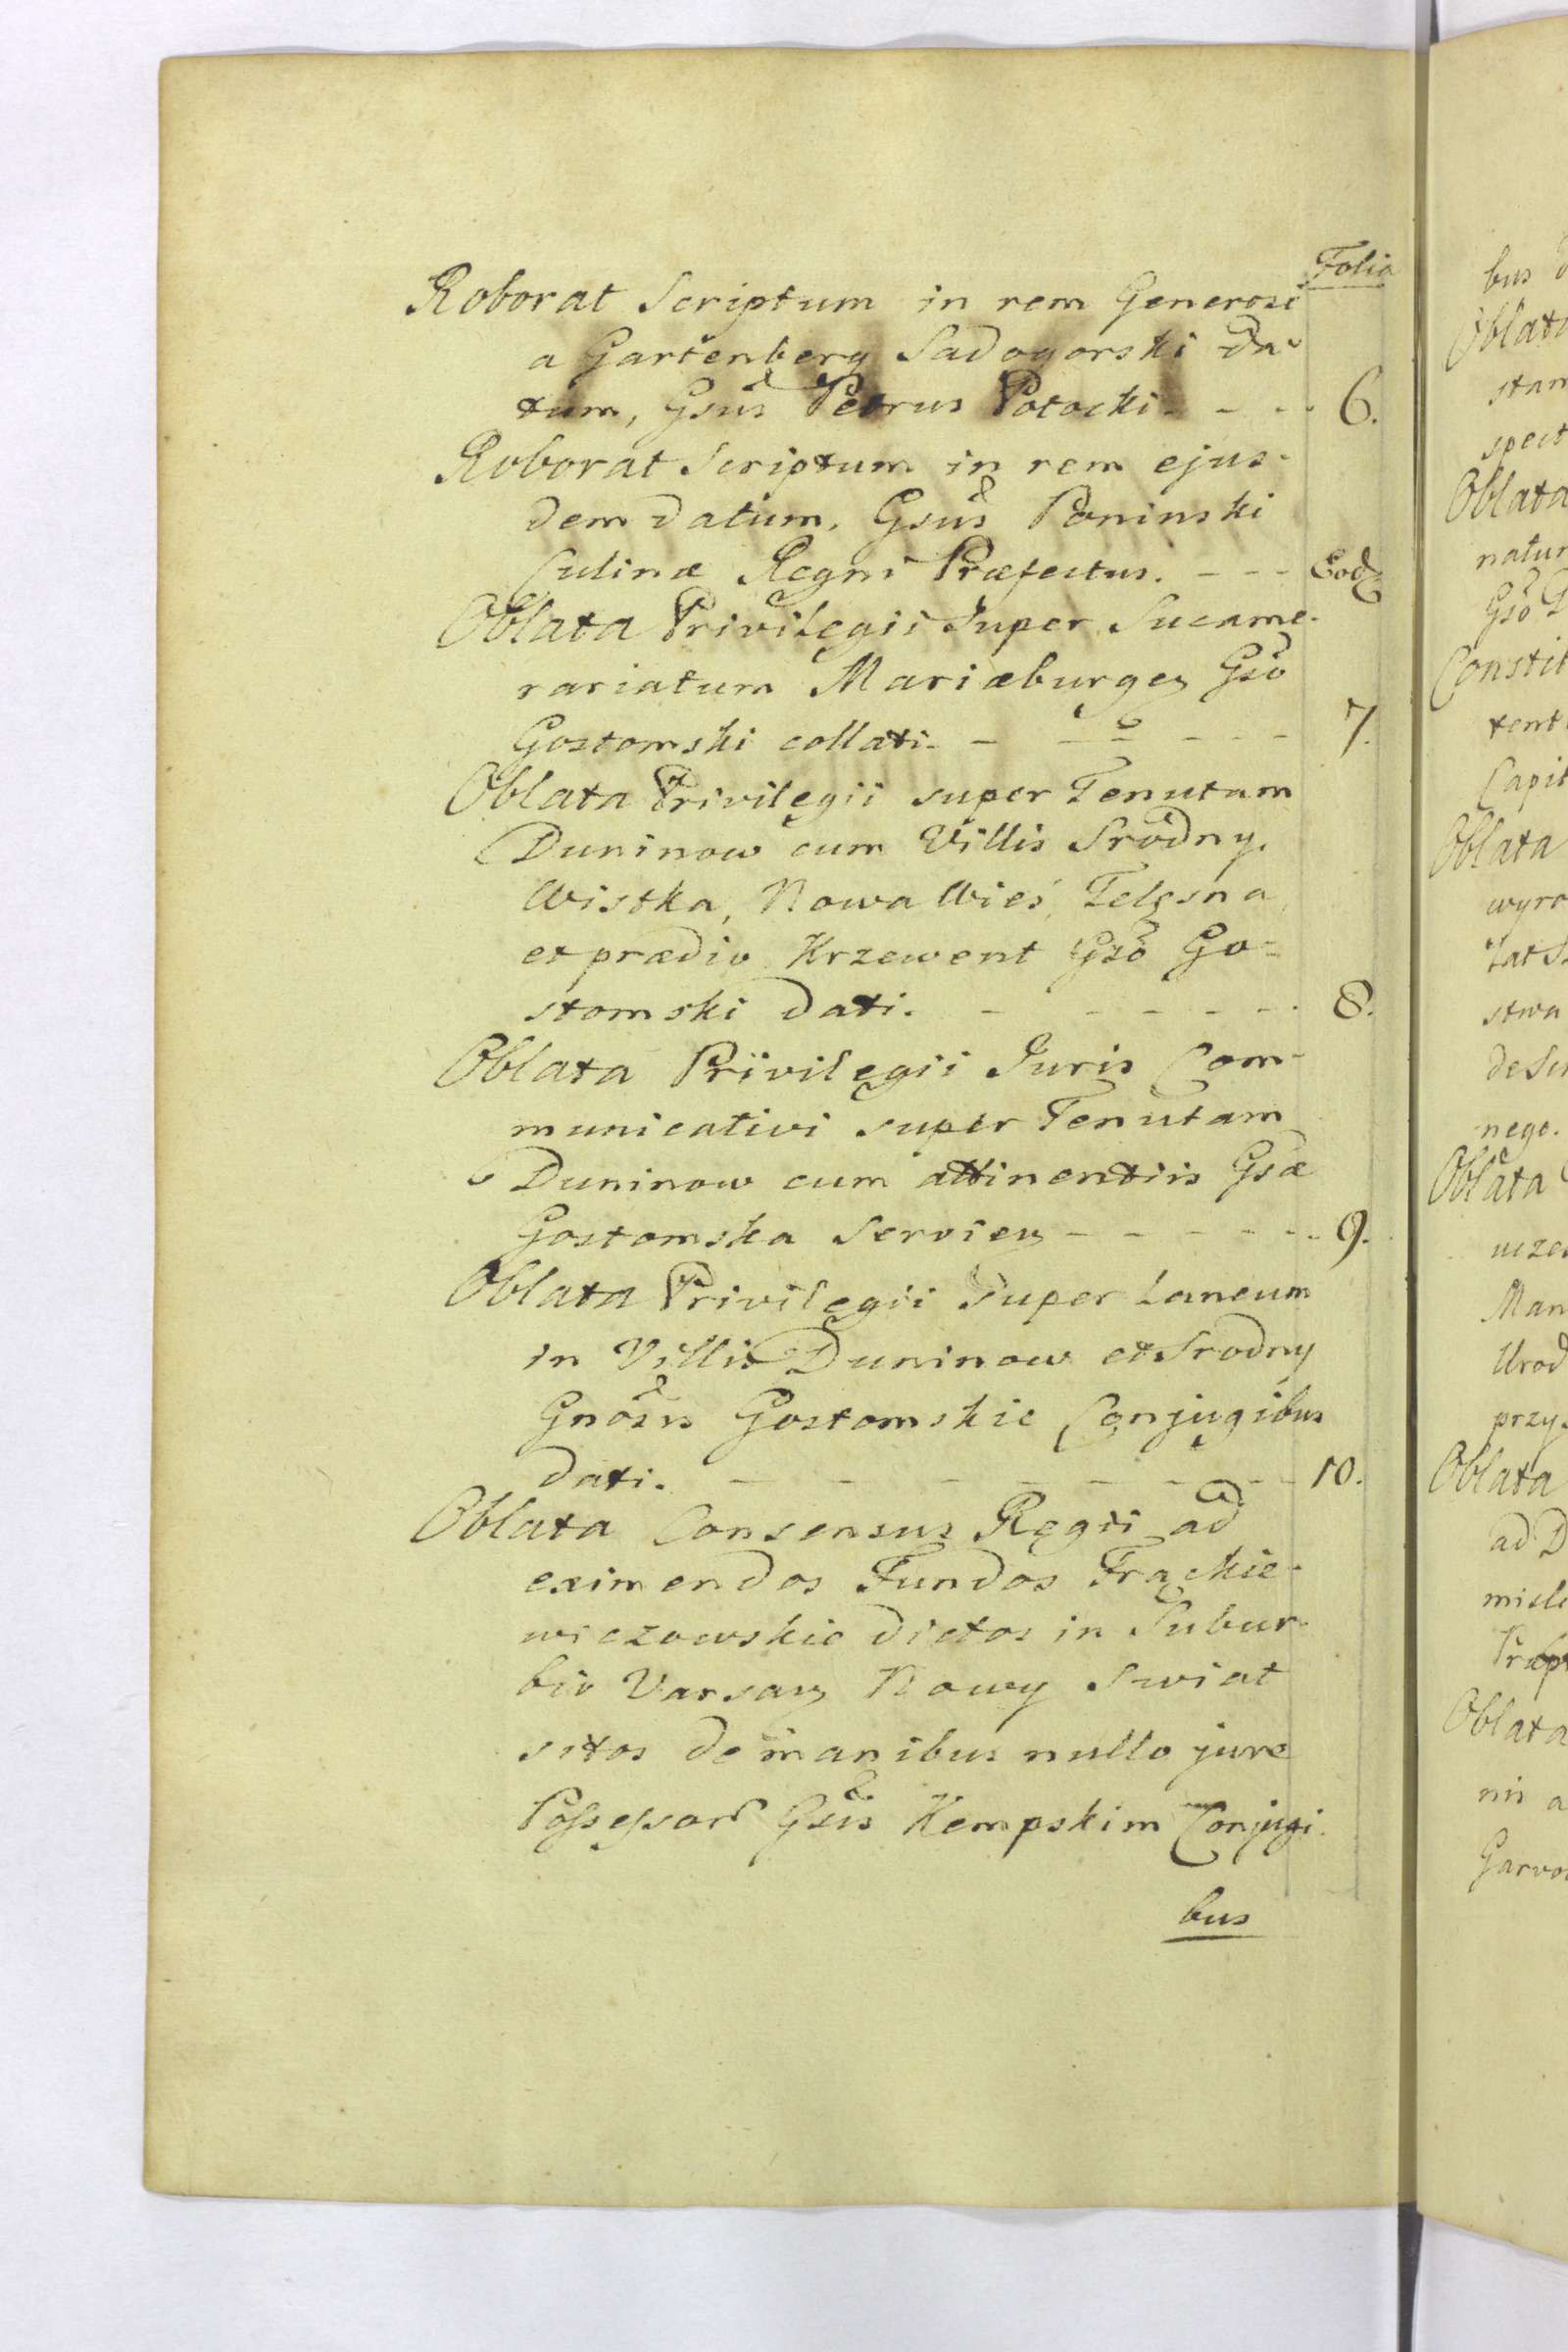 Folia
Roborat Scriptum in rem Generosi
a Gartenberg Sadogorski Da-
tum, Gsus Petrus Potocki. - - - 6.
Roborat Scriptum in rem ejus-
dem datum. Gsus Poninski
Culinæ Regni Præfectus. - - - Eod
Oblata Privilegii Super Sucame-
rariatum Mariæburgen Gso
Gostomski collati. - - - - - 7.
Oblata Privilegii super Tenutam
Duninow cum Villis Srodny.
Wistka, Nowa Wieś, Telezna,
et prædio Krzewent Gso Go-
stomski dati. - - - - - - 8.
Oblata Privilegii Juris Com-
municativi super Tenutam
Duninow cum attinentiis Gsæ
Gostomska Servien - - - - - 9.
Oblata Privilegii Super Laneum
in Villis Duninow et Srodny
Gnosis Gostomskie Conjugibus
dati. - - - - - - - - 10.
Oblata Consensus Regii ad
eximendos Fundos Frackie-
wiczowskie dictos in Subur-
bio Varsav Nowy Swiat
sitos de manibus nullo jure
Possessor Gsis Kempskim Conjugi-
bus
bus
Oblata
stam
spect
Oblata
natur
Gso
Constit
tent
Capit
Oblata
wyro
Lat
stwa
de
nego.
Oblata
uczes
Man
Urod
przy
Oblata
ad D
misle
Præp
Oblata
nis a
Garvo